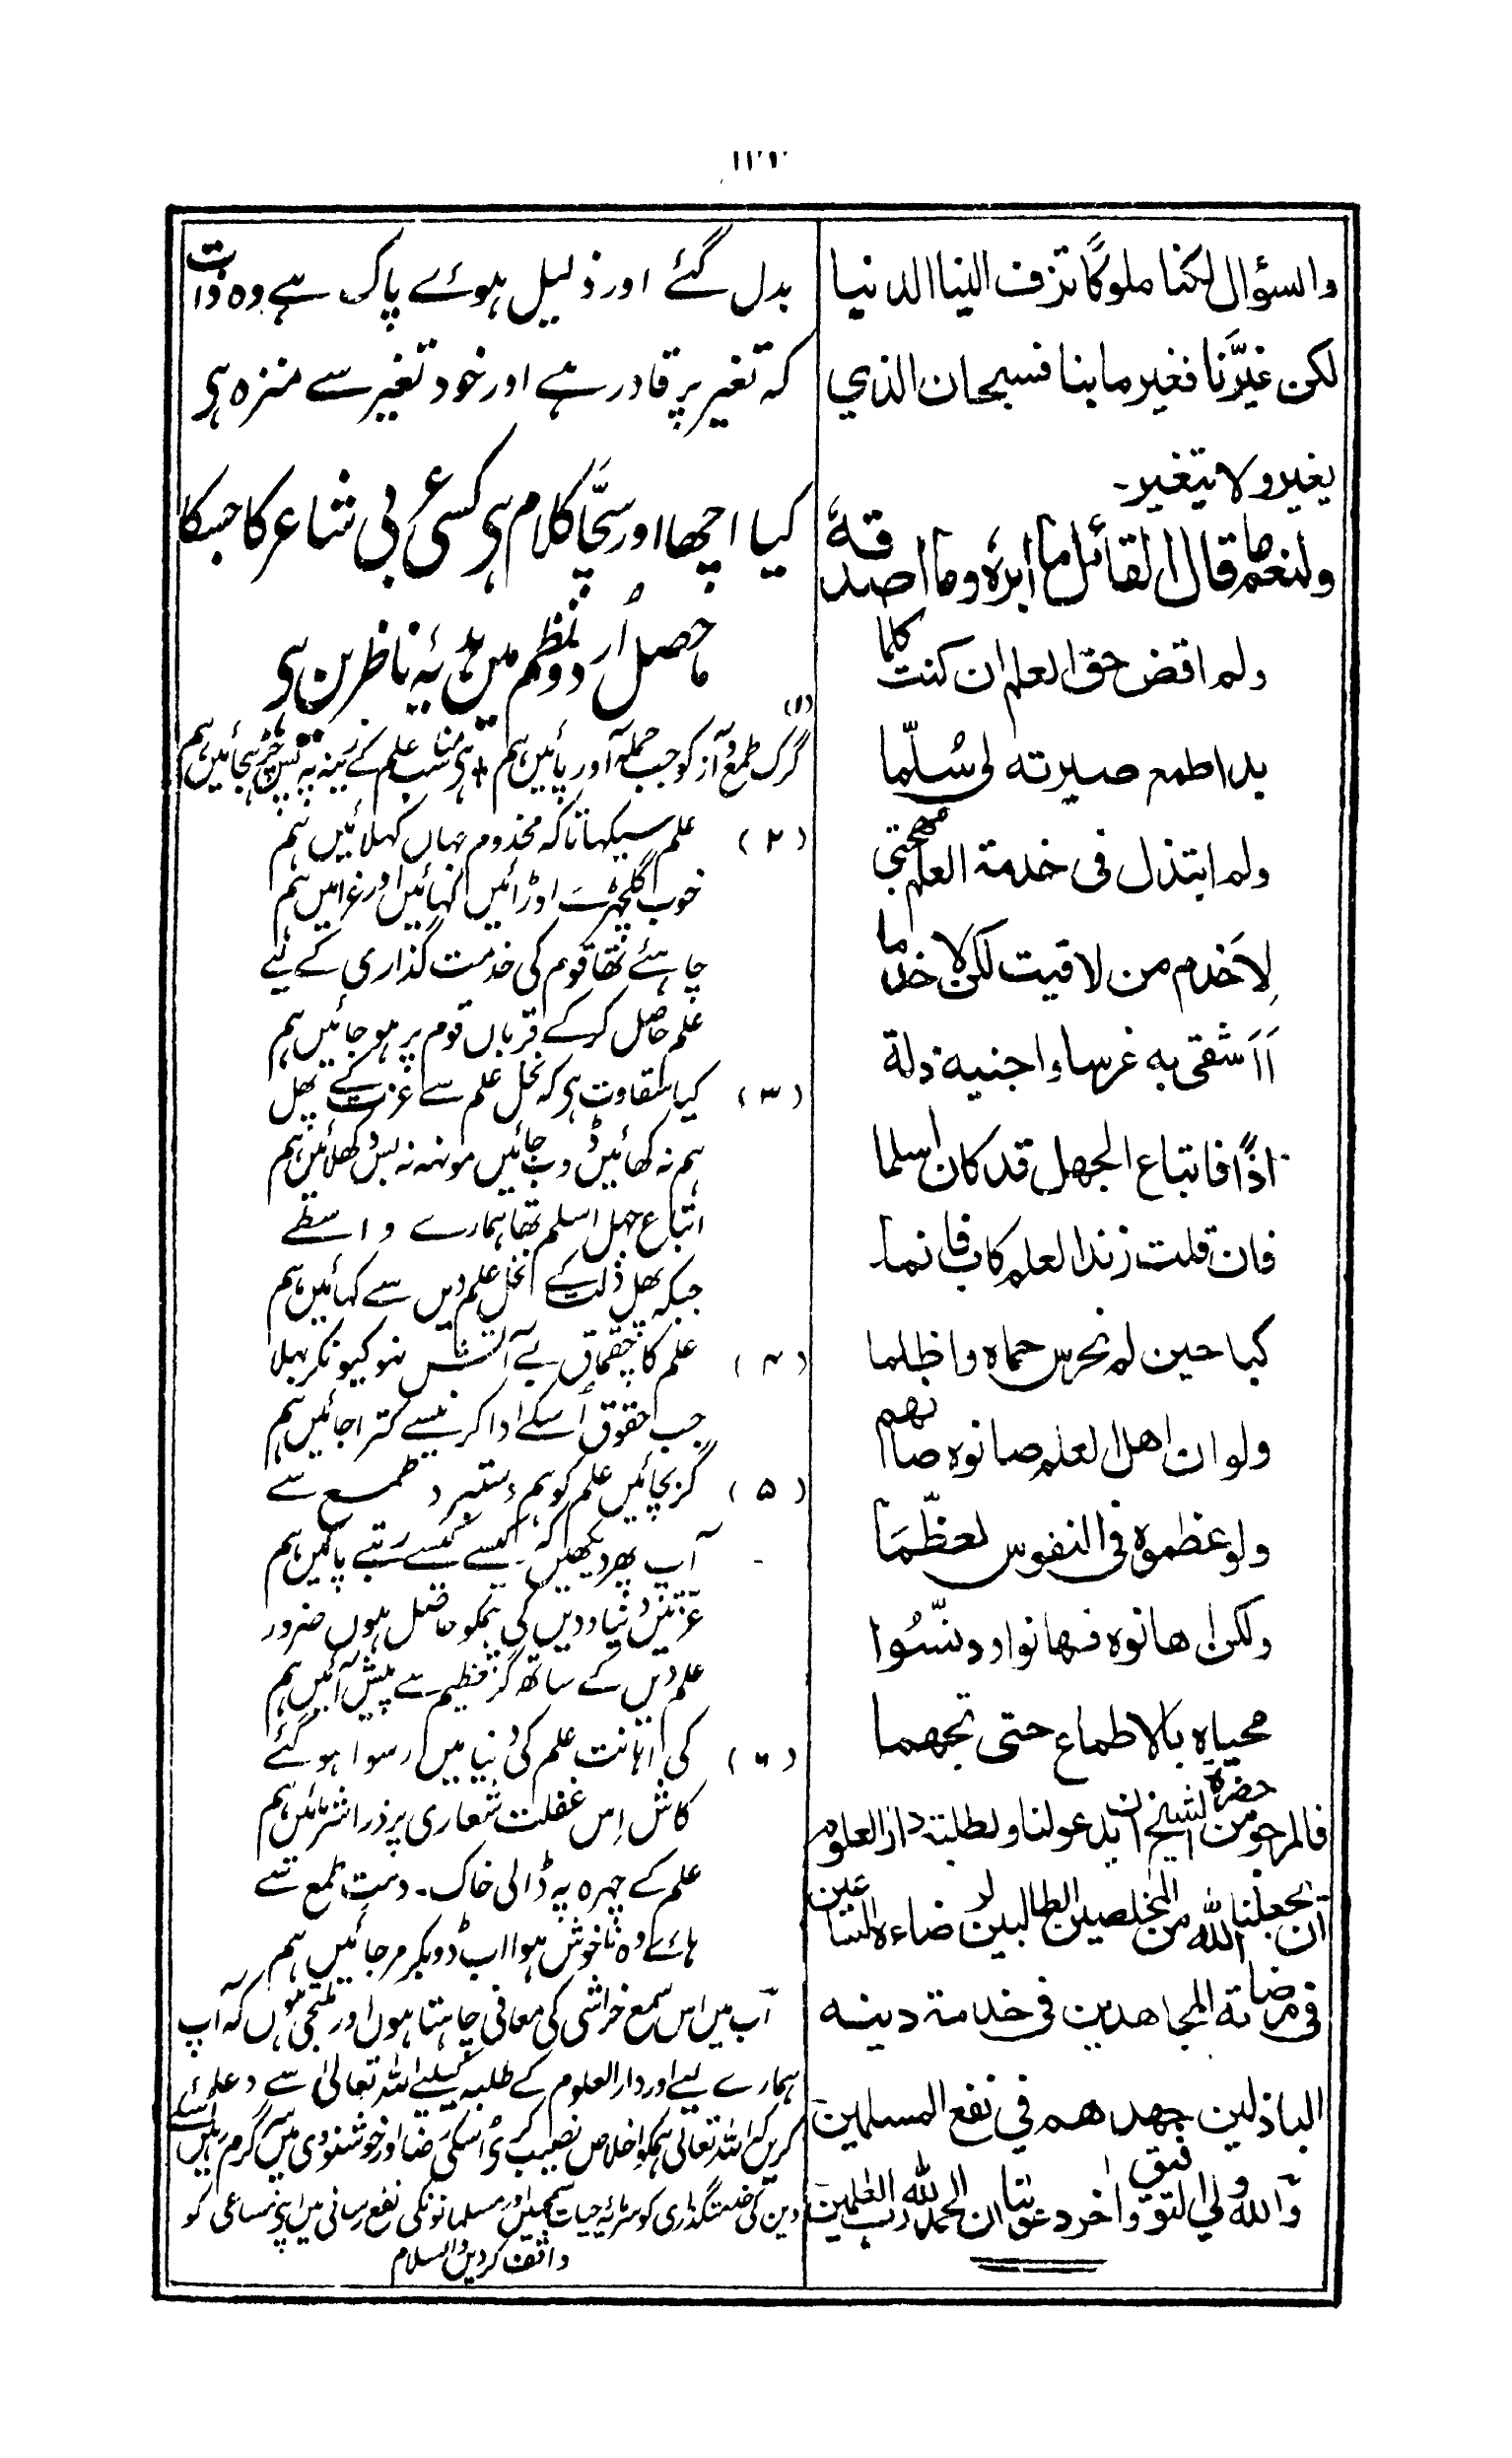 والسؤال لكنا ملوكًا تزف الينا الدنيا
لكن غيَّرنا فغير ما بنا فسبحان الذي
يغير ولا يتغير۔
ولنعم ما قال القائل ما ابرہ وما اصدقہ
ولم اقض حق العلم ان كنت كلما
بدا طمع صيرته لى سُلّما
ولم ابتذل فى خدمة العلم مهجتى
لِاَخدم من لاقيت لكن لاخدما
أَاَشقى به غرسا واجنيه ذلة
اذًا فاتباع الجهل قد كان اسلما
فان قلت زند العلم كاب فانما
كبا حين لم نحرس حماه واظلما
ولو ان اهل العلم صانوه صانهم
ولو عظموه فى النفوس لعظّمَا
ولكن اهانوه فهانوا ودنّسُوا
محياه بالاطماع حتى تجهما
فالمرجو من حضرة الشيخ ان يدعو لنا ولطلبة دار العلوم
ان يجعلنا الله من المخلصين الطالبين لرضاءه الساعين
فى مرضاته المجاهدين فى خدمة دينه
الباذلين جهدهم في نفع المسلمين
والله ولي التوفيق واخر دعوٰنا ان الحمد لله رب العٰلمين
بدل گئے اور ذلیل ہوئے پاک ہے وہ ذات
کہ تغیر پر قادر ہے اور خود تغیر سے منزہ ہی
کیا اچھا اور سچّا کلام ہی کسی عربی شاعر کا جسکا
ماحصل اُردو نظم میں ہدیۂ ناظرین ہی
(۱)
گرگ طمع و آز کو جب حملہ آور پائیں ہم + ہی مناسب علم کے زینہ پہ بس چڑہجائیں ہم
(۲) علم سیکہا تاکہ مخدوم جہاں کہلائیں ہم
خوب گلچھرے اوڑائیں کہائیں اور غرائیں ہم
چاہئے تھا قوم کی خدمت گذاری کے لئے
علم حاصل کرکے قرباں قوم پر ہو جائیں ہم
(۳) کیا شقاوت ہی کہ نخل علم سے عزت کے پھل
ہم نہ کھائیں ڈوب جائیں مونہہ نہ بس دکھلائیں ہم
اتباع جہل اسلم تھا ہمارے واسطے
جبکہ پھل ذلت کے نخل علم دیں سے کہائیں ہم
(۴) علم کا چقماق بے آتش نہو کیونکر بہلا
جب حقوق اُسکے ادا کرنیسے کترا جائیں ہم
(۵) گر بچائیں علم کو ہم دستبرد طمع سے
آپ پھر دیکھیں کہ کیسے کیسے رتبے پائیں ہم
عزتیں دنیا و دیں کی ہمکو حاصل ہوں ضرور
علم دیں کے ساتھ گر تعظیم سے پیش آئیں ہم
(۶) کی اہانت علم کی دُنیا میں رسوا ہوگئے
کاش اِس غفلت شعاری پر ذرا شرمائیں ہم
علم کے چہرہ پہ ڈالی خاک۔ دست طمع سے
ہائے وہ ناخوش ہوا اب ڈوبکر مرجائیں ہم
اب میں اس سمع خراشی کی معافی چاہتا ہوں اور ملتجی ہوں کہ آپ
ہمارے لیے اور دار العلوم کے طلبہ کیلیے اللہ تعالیٰ سے دعا
کریں کہ اللہ تعالیٰ ہمکو اخلاص نصیب کرے اسکی رضا اور خوشنودی میں سرگرم رہیں اسکے
دین کی خدمتگذاری کو سرمایۂ حیات سمجھیں اور مسلمانونکی نفع رسانی میں اپنی مساعی کو
وقف کردیں والسلام